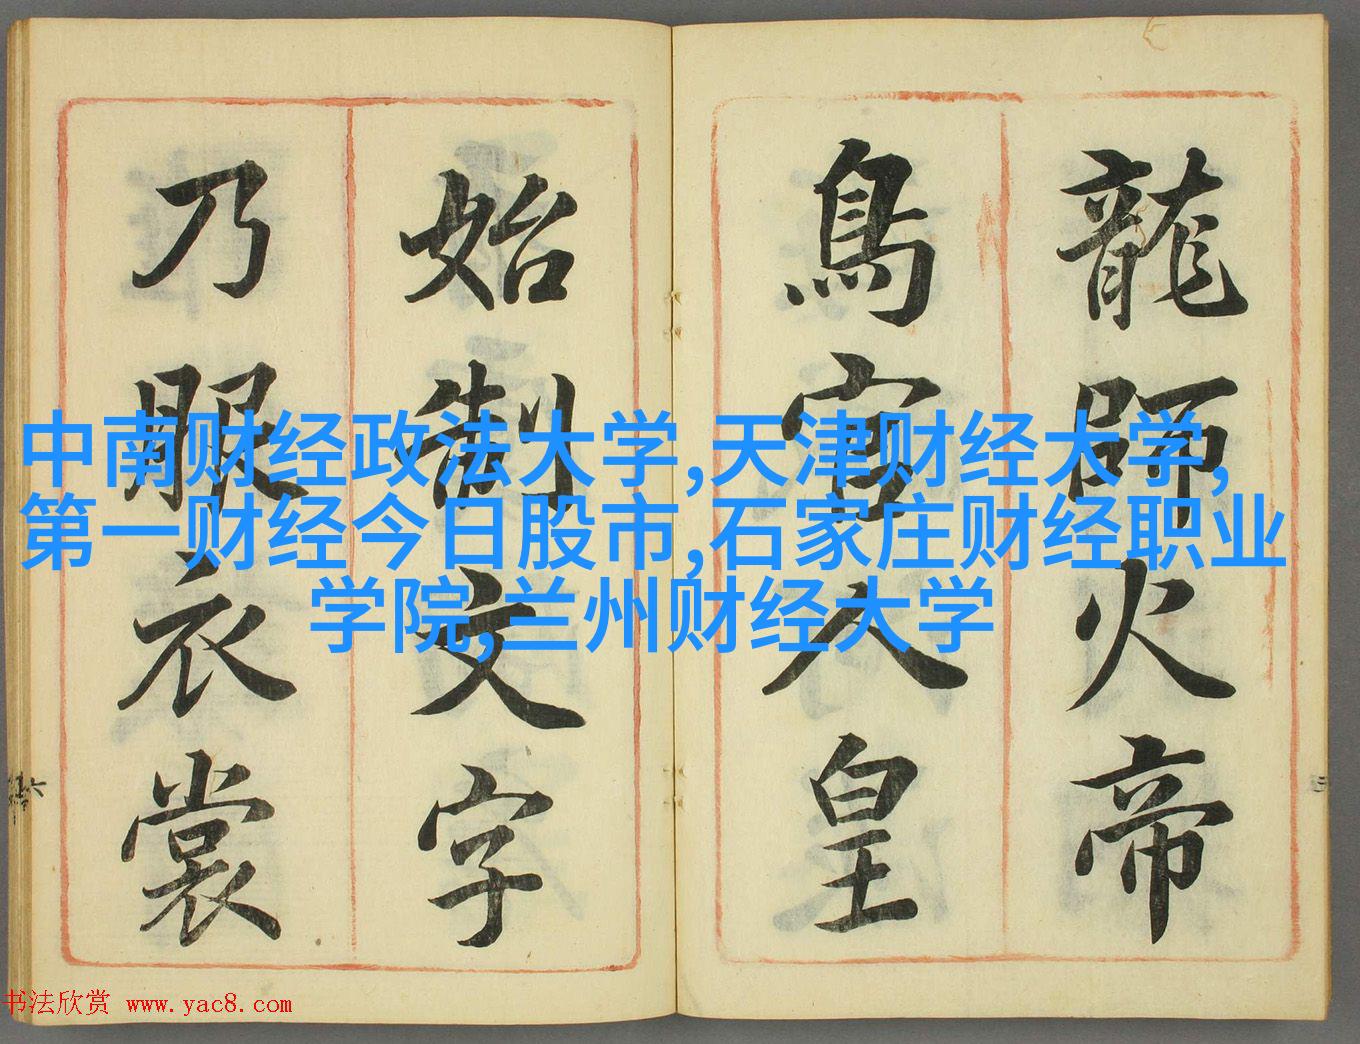 龍師火帝
鳥官人皇
始制文字
乃服衣裳
中南财经政法大学,天津财经大学,
第一财经今日股市,石家庄财经职业
学院,兰州财经大学
书法欣赏 www.yac8.com